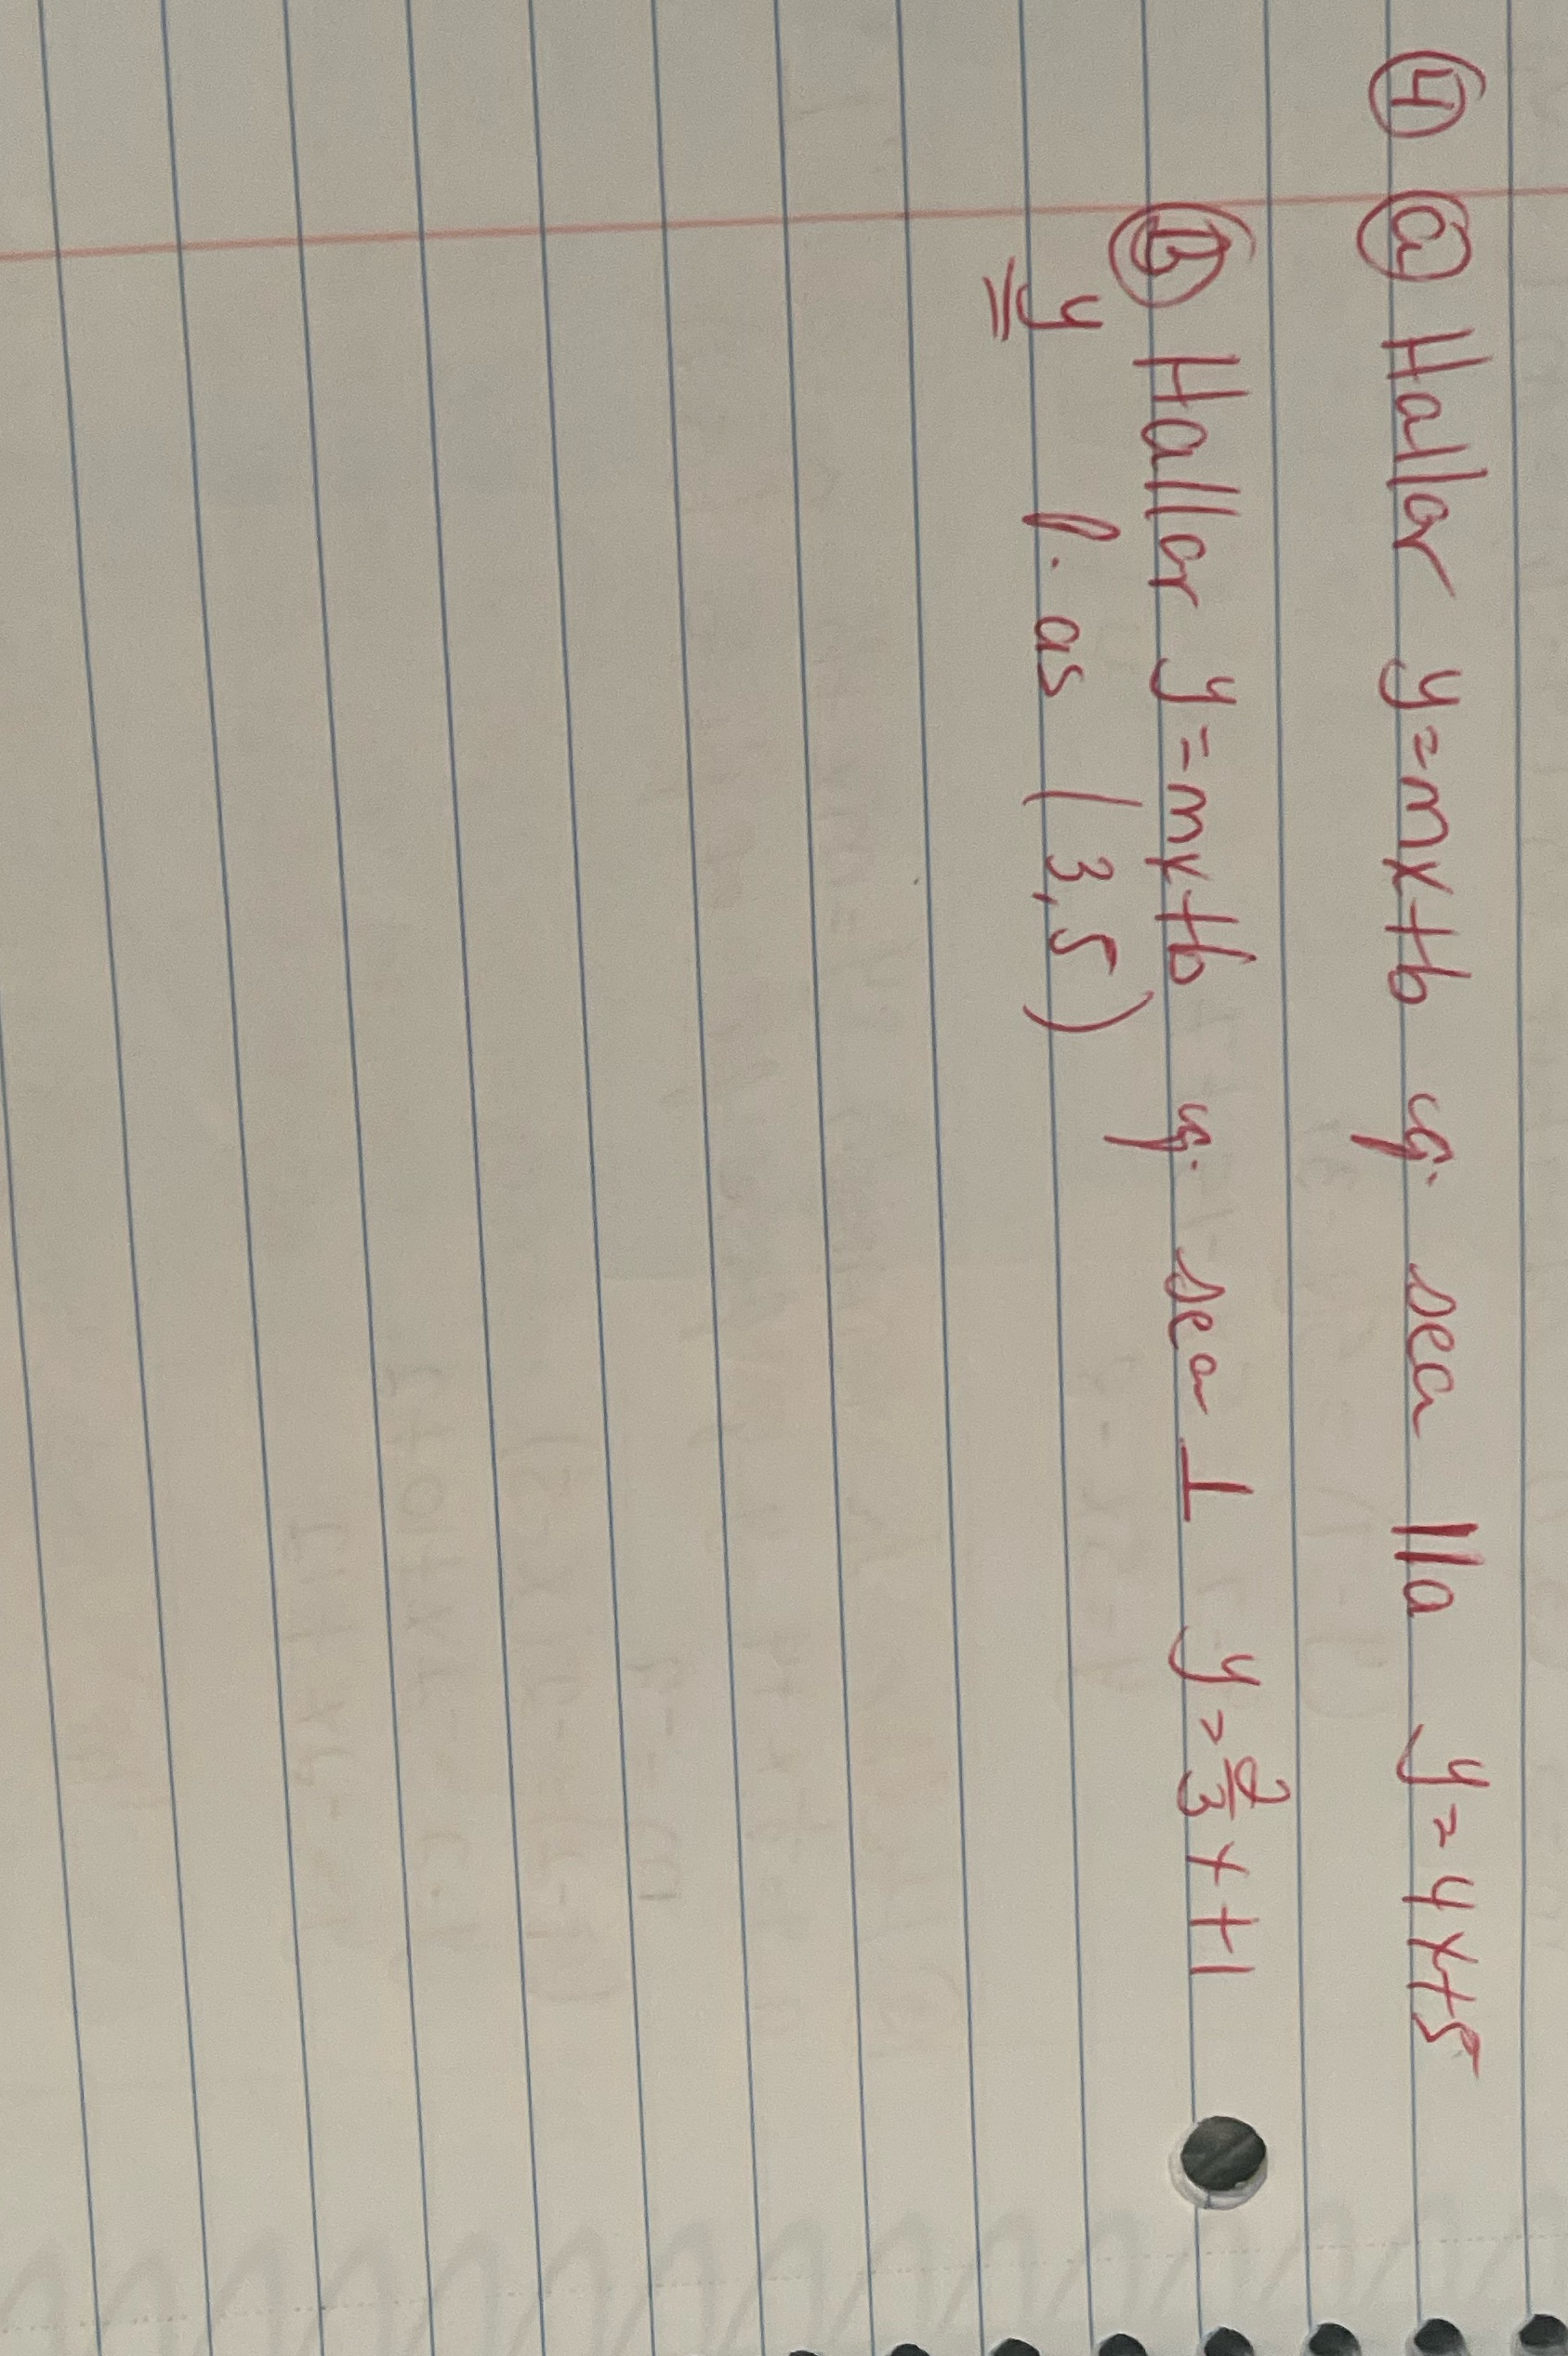 ④ ⓐ Hallar y=mx+b q. sea ||a y=4x+5
Ⓑ Hallar y=mx+b q. sea ⊥ y=2/3 x+1
y p. as (3,5)